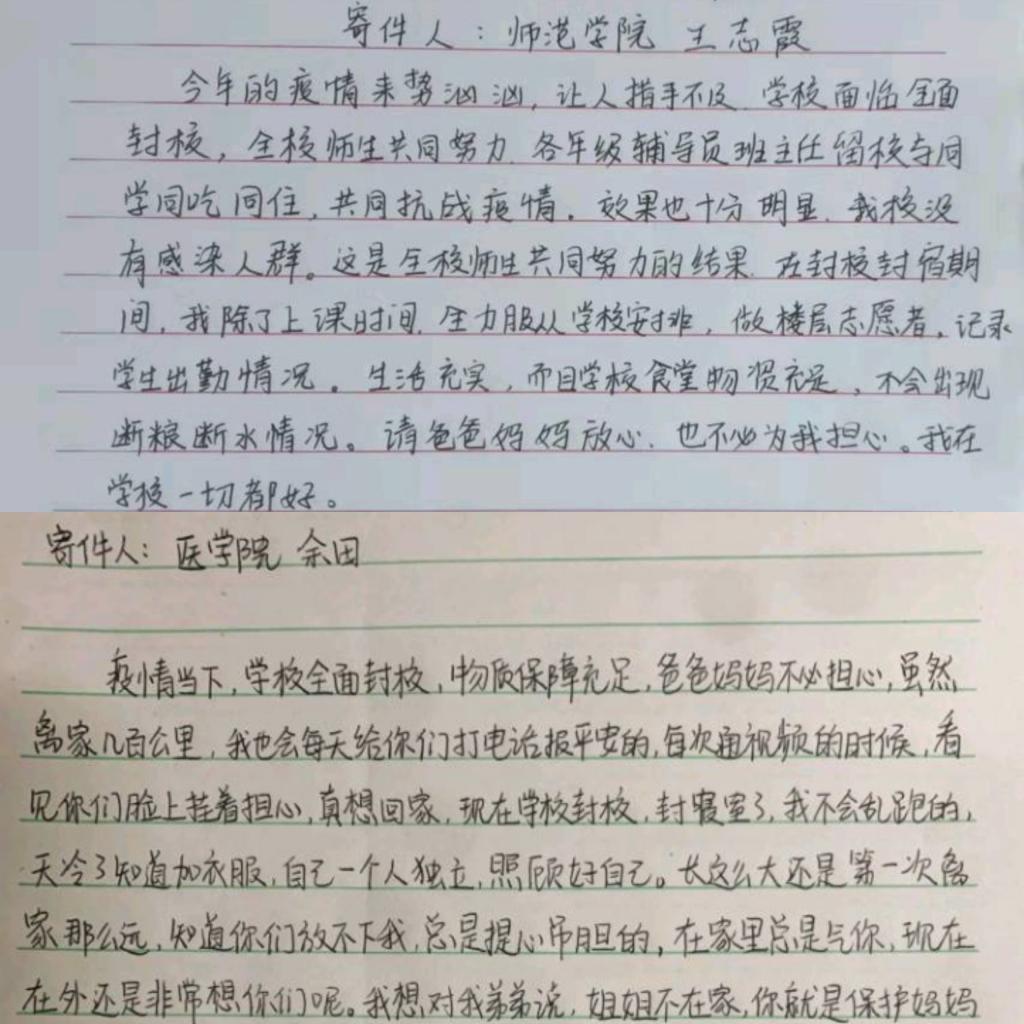 寄件人：师范学院 王志霞
今年的疫情来势汹汹，让人措手不及.学校面临全面
封校，全校师生共同努力.各年级辅导员班主任留校与同
学同吃同住，共同抗战疫情。效果也十分明显.我校没
有感染人群。这是全校师生共同努力的结果.在封校封宿期
间，我除了上课时间.全力服从学校安排，做楼层志愿者。记录
学生出勤情况。生活充实，而且学校食堂物资充足，不会出现
断粮断水情况。请爸爸妈妈放心.也不必为我担心。我在
学校一切都好。
寄件人：医学院 余田
疫情当下，学校全面封校，物质保障充足，爸爸妈妈不必担心，虽然
离家几百公里，我也会每天给你们打电话报平安的，每次通视频的时候，看
见你们脸上挂着担心，真想回家，现在学校封校，封寝室了，我不会乱跑的，
天冷了知道加衣服，自己一个人独立，照顾好自己。长这么大还是第一次离
家那么远，知道你们放不下我，总是提心吊胆的，在家里总是气你，现在
在外还是非常想你们呢。我想对我弟弟说，姐姐不在家，你就是保护妈妈